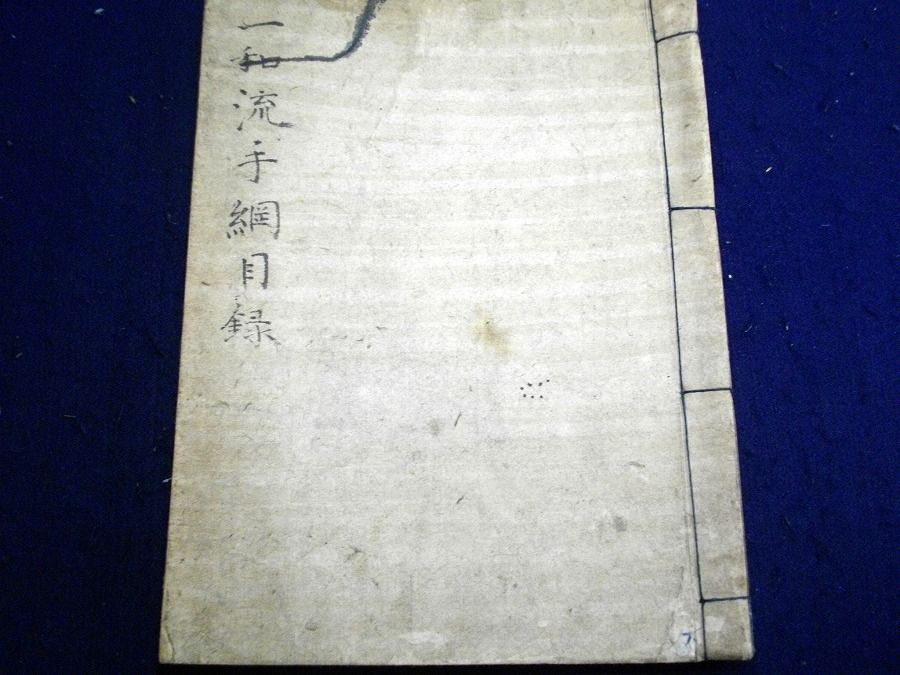 一和流手綱目録
7